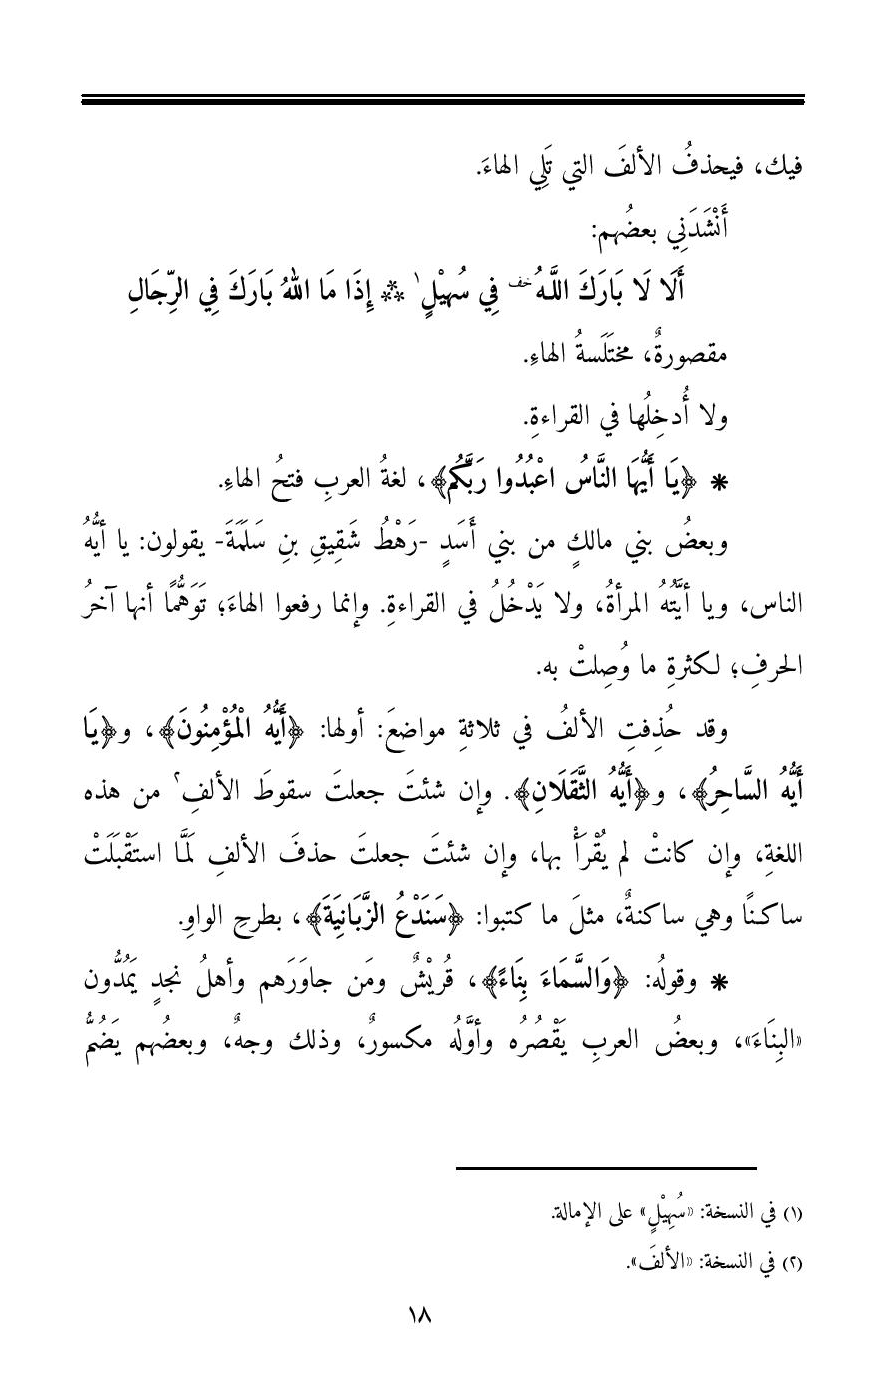 فيك، فيحذفُ الألفَ التي تَلِي الهاءَ.
أَنْشَدَنِي بعضُهم:
أَلَا لَا بَارَكَ اللَّـهُ خف فِي سُهيْلٍ١ ⁂ إِذَا مَا اللهُ بَارَكَ فِي الرِّجَالِ
مقصورةٌ، مختَلَسةُ الهاءِ.
ولا أُدخِلُها في القراءةِ.
* ﴿يَا أَيُّهَا النَّاسُ اعْبُدُوا رَبَّكُم﴾، لغةُ العربِ فتحُ الهاءِ.
وبعضُ بني مالكٍ من بني أَسَدٍ -رَهْطُ شَقِيقِ بنِ سَلَمَةَ- يقولون: يا أيُّهُ
الناس، ويا أيَّتُهُ المرأةُ، ولا يَدْخُلُ في القراءةِ. وإنما رفعوا الهاءَ؛ تَوَهُّمًا أنها آخرُ
الحرفِ؛ لكثرةِ ما وُصِلتْ به.
وقد حُذِفتِ الألفُ في ثلاثةِ مواضعَ: أولها: ﴿أَيُّهُ الْمُؤْمِنُونَ﴾، و﴿يَا
أَيُّهُ السَّاحِرُ﴾، و﴿أَيُّهُ الثَّقَلَانِ﴾. وإن شئتَ جعلتَ سقوطَ الألفِ٢ من هذه
اللغةِ، وإن كانتْ لم يُقْرَأْ بها، وإن شئتَ جعلتَ حذفَ الألفِ لَمَّا استَقْبَلَتْ
ساكنًا وهي ساكنةٌ، مثلَ ما كتبوا: ﴿سَنَدْعُ الزَّبَانِيَةَ﴾، بطرحِ الواوِ.
* وقولُه: ﴿وَالسَّمَاءَ بِنَاءً﴾، قُريْشٌ ومَن جاوَرَهم وأهلُ نجدٍ يَمُدُّون
«البِنَاءَ»، وبعضُ العربِ يَقْصُرُه وأوَّلُه مكسورٌ، وذلك وجهٌ، وبعضُهم يَضُمُّ
(١) في النسخة: «سُهِيْلٍ» على الإمالة.
(٢) في النسخة: «الألفَ».
١٨